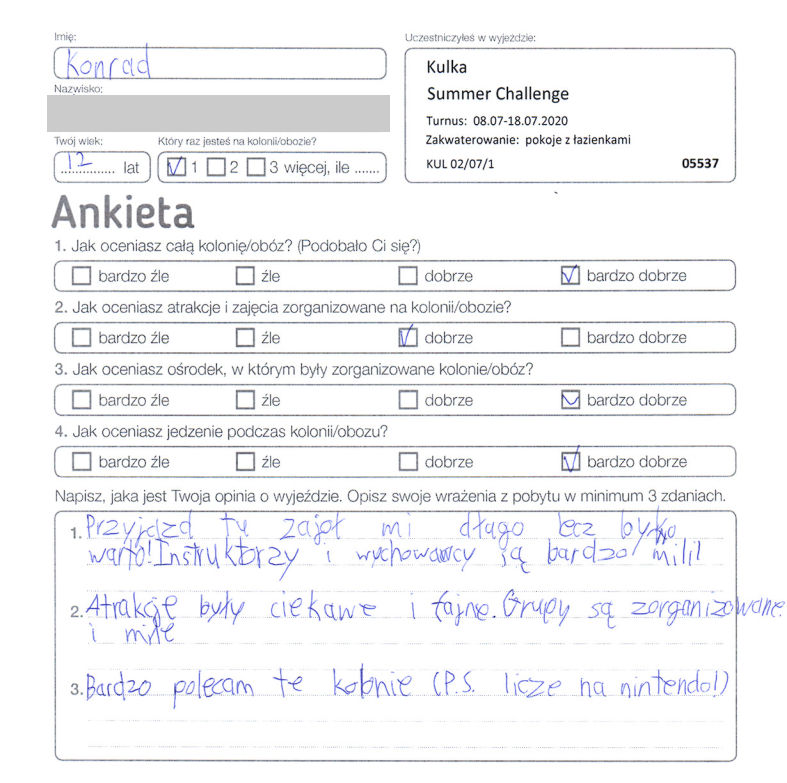 Imię:
Konrad
Nazwisko:
Twój wiek:
12 lat
Który raz jesteś na kolonii/obozie?
1 2 3 więcej, ile .......
Uczestniczyłeś w wyjeździe:
Kulka
Summer Challenge
Turnus: 08.07-18.07.2020
Zakwaterowanie: pokoje z łazienkami
KUL 02/07/1 05537
Ankieta
1. Jak oceniasz całą kolonię/obóz? (Podobało Ci się?)
bardzo źle źle dobrze bardzo dobrze
2. Jak oceniasz atrakcje i zajęcia zorganizowane na kolonii/obozie?
bardzo źle źle dobrze bardzo dobrze
3. Jak oceniasz ośrodek, w którym były zorganizowane kolonie/obóz?
bardzo źle źle dobrze bardzo dobrze
4. Jak oceniasz jedzenie podczas kolonii/obozu?
bardzo źle źle dobrze bardzo dobrze
Napisz, jaka jest Twoja opinia o wyjeździe. Opisz swoje wrażenia z pobytu w minimum 3 zdaniach.
1. Przyjazd tu zajoł mi długo lecz było
warto! Instruktorzy i wychowawcy są bardzo mili!
2. Atrakcje były ciekawe i fajne. Grupy są zorganizowane
i miłe
3. Bardzo polecam te kolonie (P.S. licze na nintendo!)